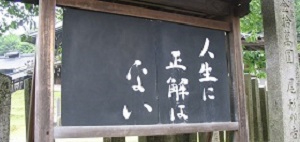 人生に
正解は
ない